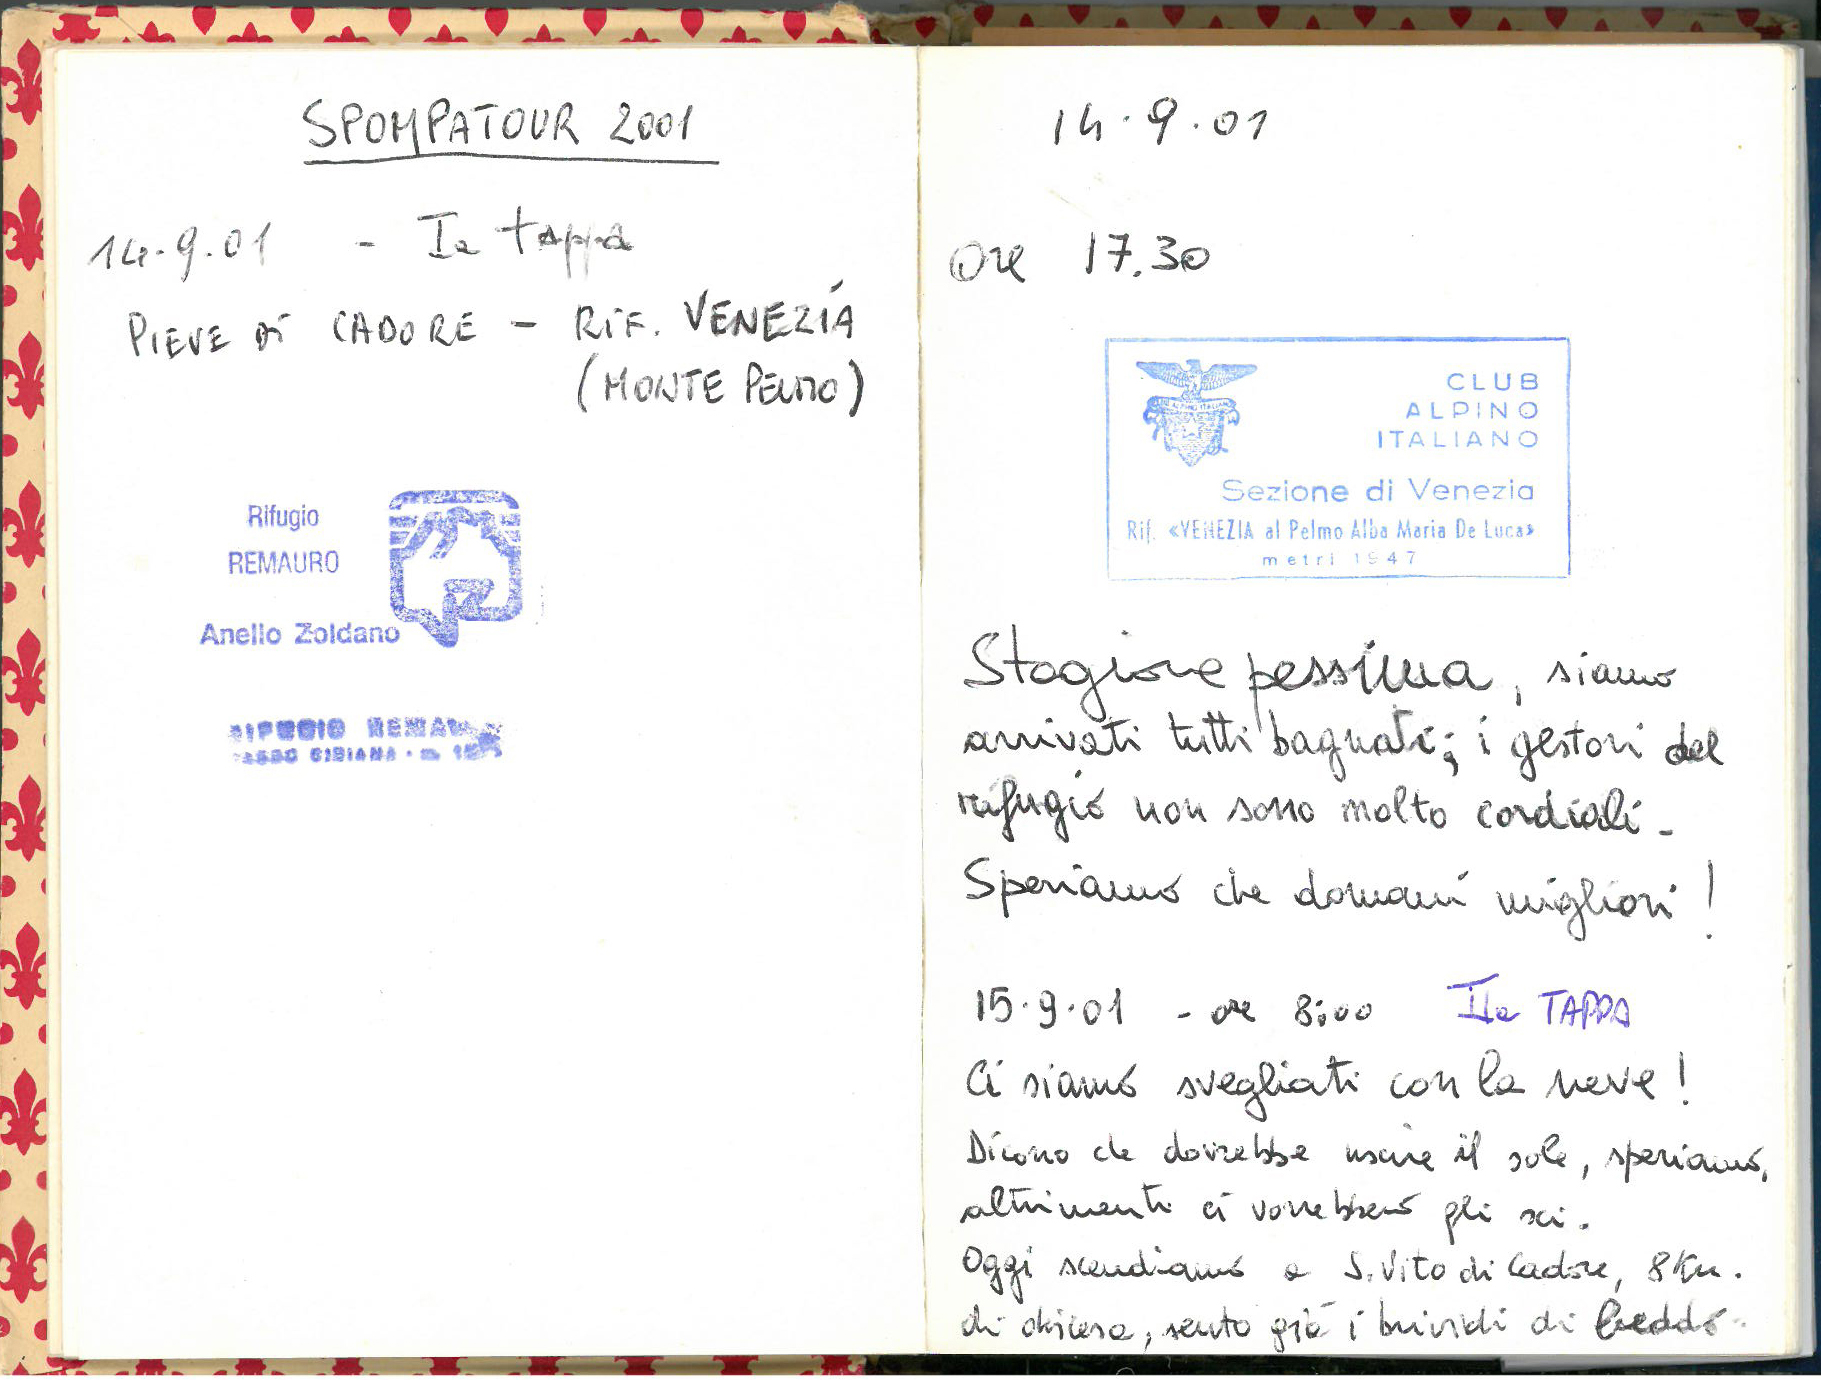 SPOMPATOUR 2001
14.9.01 - Ia tappa
PIEVE DI CADORE - RIF. VENEZIA
(MONTE PELMO)
Rifugio
REMAURO
Anello Zoldano
RIFUGIO REMAURO
CIBIANA
14.9.01
Ore 17.30
CLUB
ALPINO
ITALIANO
Sezione di Venezia
Rif. «VENEZIA al Pelmo Alba Maria De Luca»
metri 1947
Stagione pessima, siamo
arrivati tutti bagnati; i gestori del
rifugio non sono molto cordiali -
Speriamo che domani migliori!
15.9.01 - ore 8:00 IIa TAPPA
Ci siamo svegliati con la neve!
Dicono che dovrebbe uscire il sole, speriamo,
altrimenti ci vorrebbero gli sci.
Oggi scendiamo a S. Vito di Cadore, 8 Km.
di discesa, sento già i brividi di freddo -